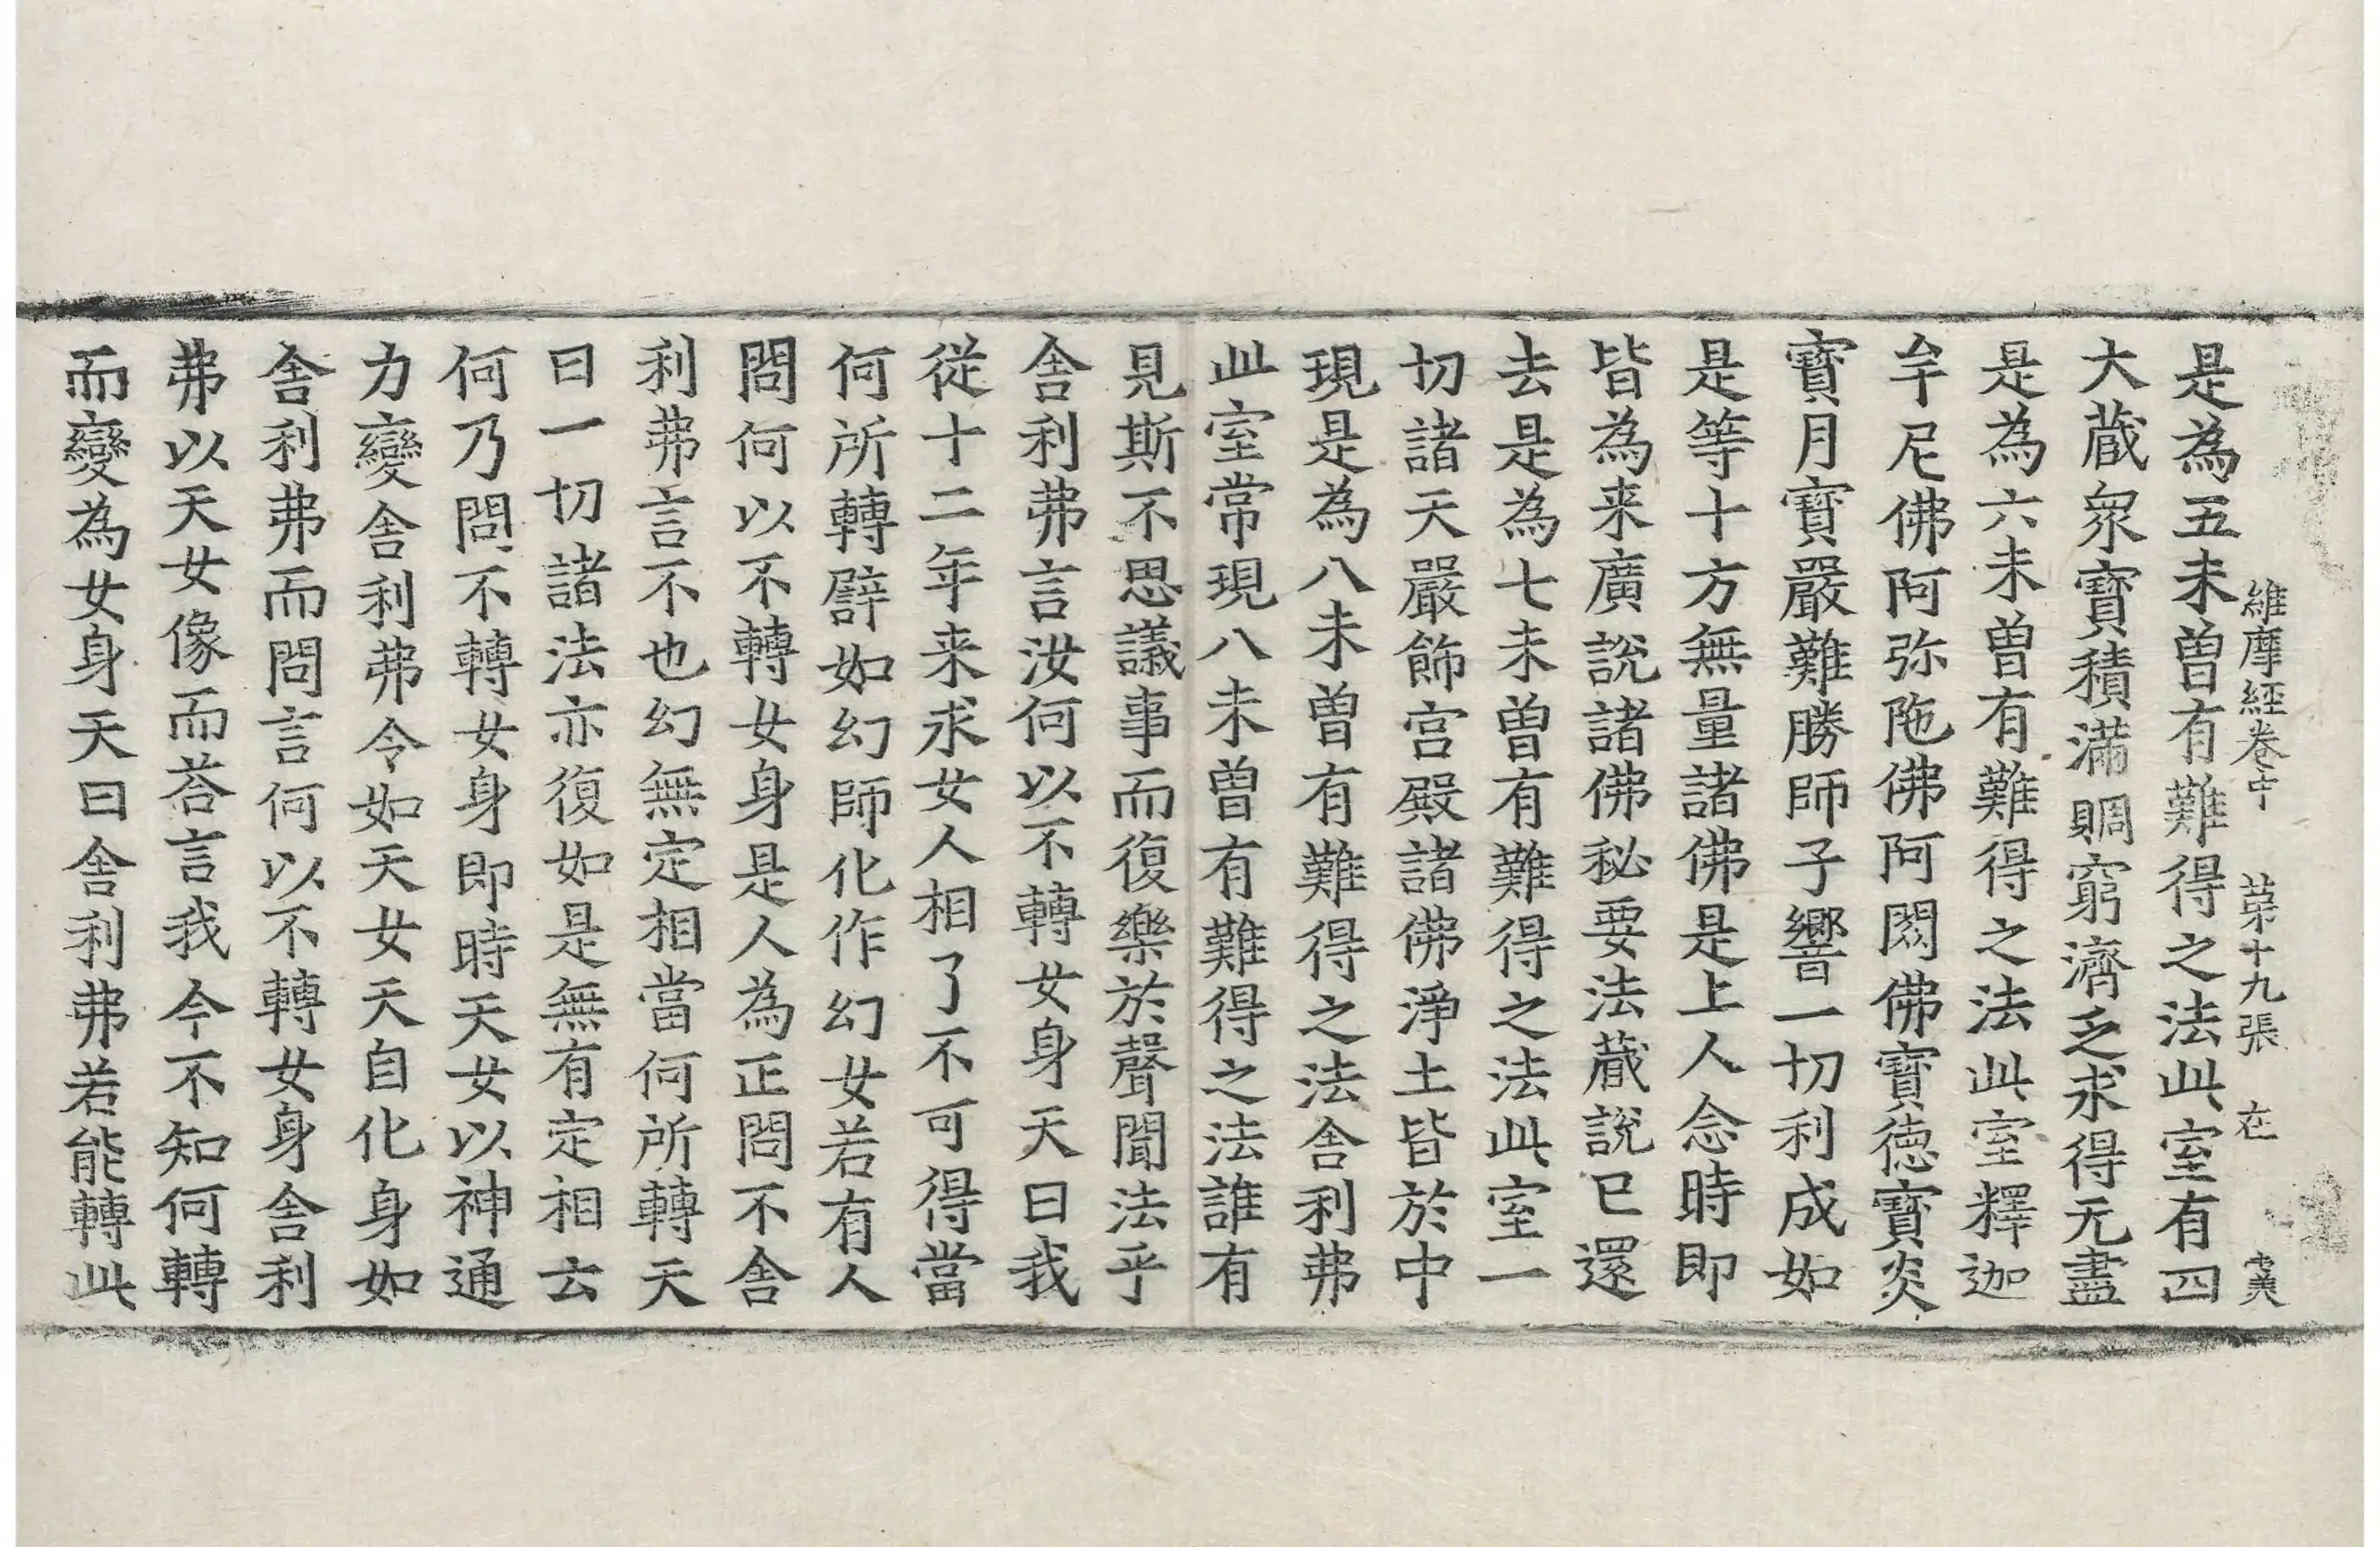 維摩經卷中 苐十九張 在
是為五未曾有難得之法此室有四
大蔵衆寳積滿賙窮濟乏求得无盡
是為六未曾有難得之法此室釋迦
牟尼佛阿弥陁佛阿閦佛寳德寳炎
寳月寳嚴難勝師子響一切利成如
是等十方無量諸佛是上人念時即
皆為来廣說諸佛秘要法蔵說已還
去是為七未曾有難得之法此室一
切諸天嚴飾宫殿諸佛淨土皆於中
現是為八未曾有難得之法舍利弗
此室常現八未曾有難得之法誰有
見斯不思議事而復樂於聲聞法乎
舍利弗言汝何以不轉女身天曰我
從十二年来求女人相了不可得當
何所轉譬如幻師化作幻女若有人
問何以不轉女身是人為正問不舍
利弗言不也幻無定相當何所轉天
曰一切諸法亦復如是無有定相云
何乃問不轉女身即時天女以神通
力變舍利弗令如天女天自化身如
舍利弗而問言何以不轉女身舍利
弗以天女像而荅言我今不知何轉
而變為女身天曰舍利弗若能轉此